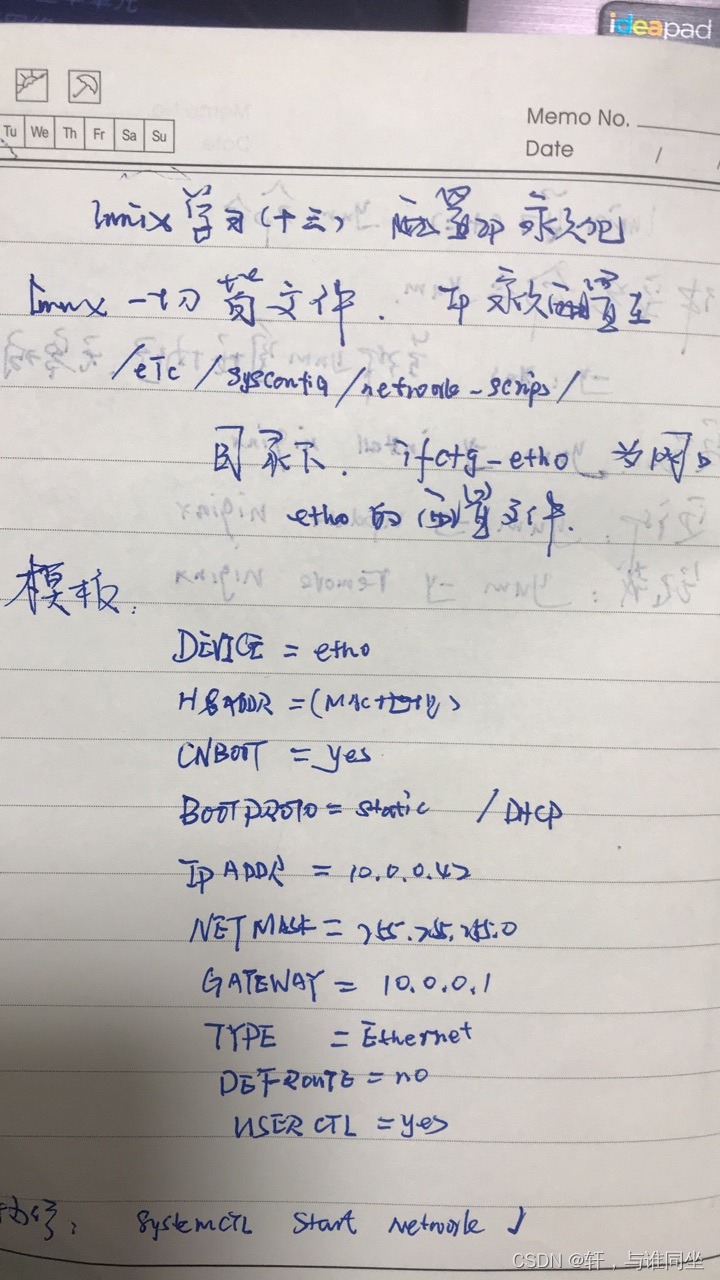 ideapad
Memo No.
Tu We Th Fr Sa Su
Date / /
linux学习(十三) 配置IP 永久化
linux 一切皆文件. IP 永久配置在
/etc/sysconfig/network-scrips/
目录下. ifcfg-eth0 为网口
eth0 的配置文件.
模板:
DEVICE = eth0
HWADDR =(MAC地址)
ONBOOT = yes
BOOTPROTO = static / DHCP
IPADDR = 10.0.0.42
NETMASK = 255.255.255.0
GATEWAY = 10.0.0.1
TYPE = Ethernet
DEFROUTE = no
USERCTL = yes
systemCTL start network
CSDN @轩,与谁同坐